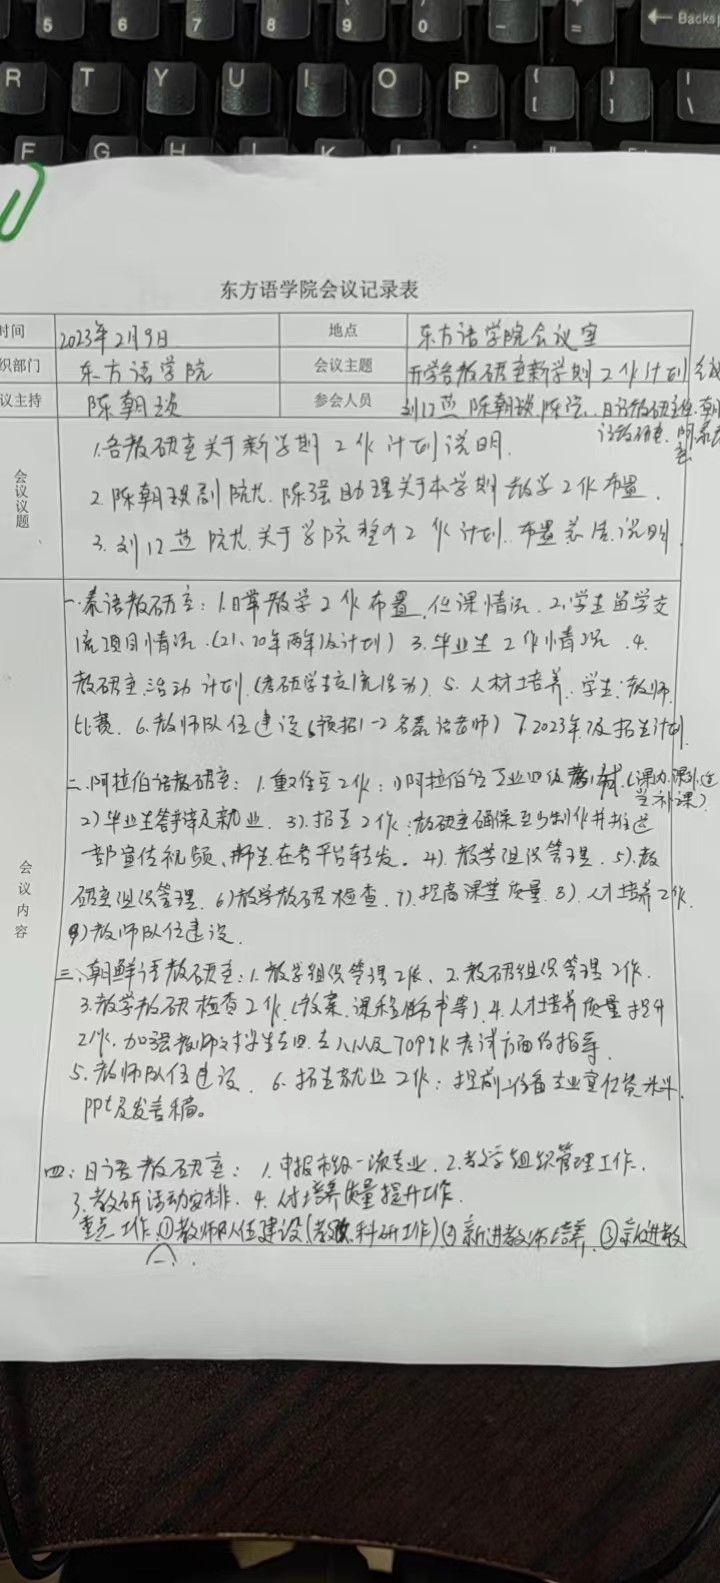 5 6 7 8 9 0 - = Backsp
R T Y U I O P { [ } ] | \
F G H
东方语学院会议记录表
时间 2023年2月9日 地点 东方语学院会议室
织部门 东方语学院 会议主题 开学各教研室新学期工作计划会议
议主持 陈朝琰 参会人员 刘口益 陈朝琰、陈强、日语教研室、朝
语教研室、阿
会议议题
1.各教研室关于新学期工作计划说明.
2.陈朝琰副院长、陈强助理关于本学期教学工作布置.
3.刘口益院长关于学院整个工作计划、布置总结说明.
会议内容
一.泰语教研室:1.日常教学工作布置,任课情况.2.学生留学交
流项目情况.(21、20年两年级计划)3.毕业生工作情况.4.
教研室活动计划.(考研学生交流活动).5.人材培养:学生.教师.
比赛.6.教师队伍建设(预招1-2名泰语老师)7.2023年级招生计划.
二.阿拉伯语教研室:1.重点工作:1)阿拉伯语专业四级考试.(课内.课外适
当补课)
2)毕业生答辩及就业.3).招生工作:教研室确保至少制作并推送
一部宣传视频、师生在各平台转发.4).教学组织管理.5).教
研室组织管理.6)教学教研检查.7).提高课堂质量.8).人才培养工作.
9)教师队伍建设.
三、朝鲜语教研室:1.教学组织管理工作、2.教研组织管理工作.
3.教学教研检查工作.(教案、课程任务书等).4.人才培养质量提升
工作.加强教师对学生专四、专八以及TOPIK考试方面的指导.
5.教师队伍建设. 6.招生就业工作:提前准备专业宣传资料.
ppt及发言稿。
四:日语教研室:1.申报市级一流专业.2.教学组织管理工作.
3.教研活动安排.4.人才培养质量提升工作.
重点工作.①教师队伍建设(教改.科研工作)②新进教师培养,③新进教